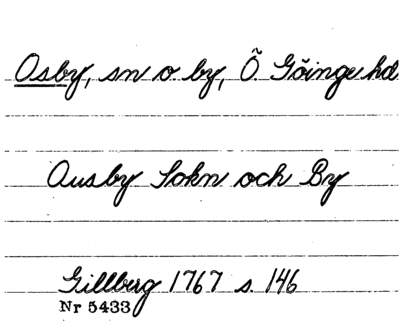 Osby, sn o. by, Ö. Göinge hd
Ausby Sokn och By
Gillberg 1767 s. 146
Nr 5433